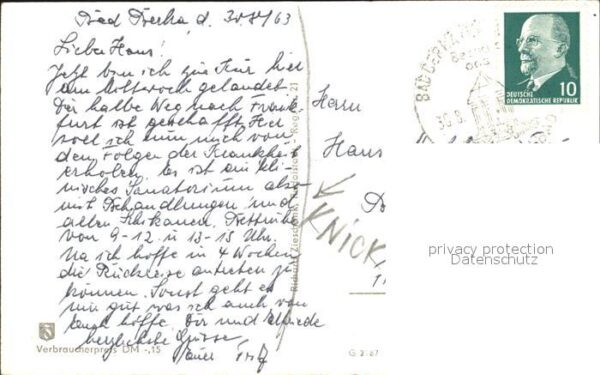 Bad Berka d. 30.8./63
Lieber Hans!
Jetzt bin ich zur Kur hier
am Mittwoch gelandet
Der halbe Weg nach Frank-
furt ist geschafft. Hier
soll ich nun mich von
den Folgen der Krankheit
erholen. Es ist ein kli-
nisches Sanatorium also
mit Behandlungen und
allen Schikanen. Bettruhe
von 9-12 u 13-15 Uhr.
Na ich hoffe in 4 Wochen
die Rückreise antreten zu
können. Sonst geht es
mir gut was ich auch von
Euch hoffe. Dir und
herzlichste Grüsse
Euer
Verbraucherpreis DM -,15
G 2.67
Herrn
Hans
KNICK
privacy protection
Datenschutz
10
DEUTSCHE
DEMOKRATISCHE REPUBLIK
30.8.